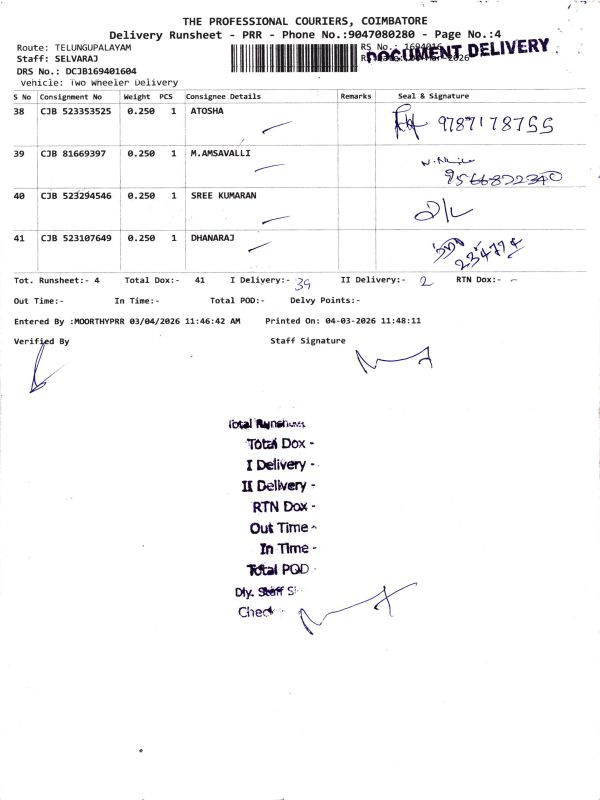 THE PROFESSIONAL COURIERS, COIMBATORE
Delivery Runsheet - PRR - Phone No.:9047080280 - Page No.:4
Route: TELUNGUPALAYAM
RS No.: 1694016
DOCUMENT DELIVERY
Staff: SELVARAJ
DRS No.: DCJB169401604
Vehicle: Two Wheeler Delivery
S No Consignment No Weight PCS Consignee Details Remarks Seal & Signature
38 CJB 523353525 0.250 1 ATOSHA 9787178755
39 CJB 81669397 0.250 1 M.AMSAVALLI 9566822340
40 CJB 523294546 0.250 1 SREE KUMARAN
41 CJB 523107649 0.250 1 DHANARAJ
Tot. Runsheet:- 4 Total Dox:- 41 I Delivery:- 39 II Delivery:- 2 RTN Dox:- -
Out Time:- In Time:- Total POD:- Delvy Points:-
Entered By :MOORTHYPRR 03/04/2026 11:46:42 AM Printed On: 04-03-2026 11:48:11
Verified By Staff Signature
Total Runsheet
Total Dox -
I Delivery -
II Delivery -
RTN Dox -
Out Time -
In Time -
Total POD
Dly. Staff Si
Check